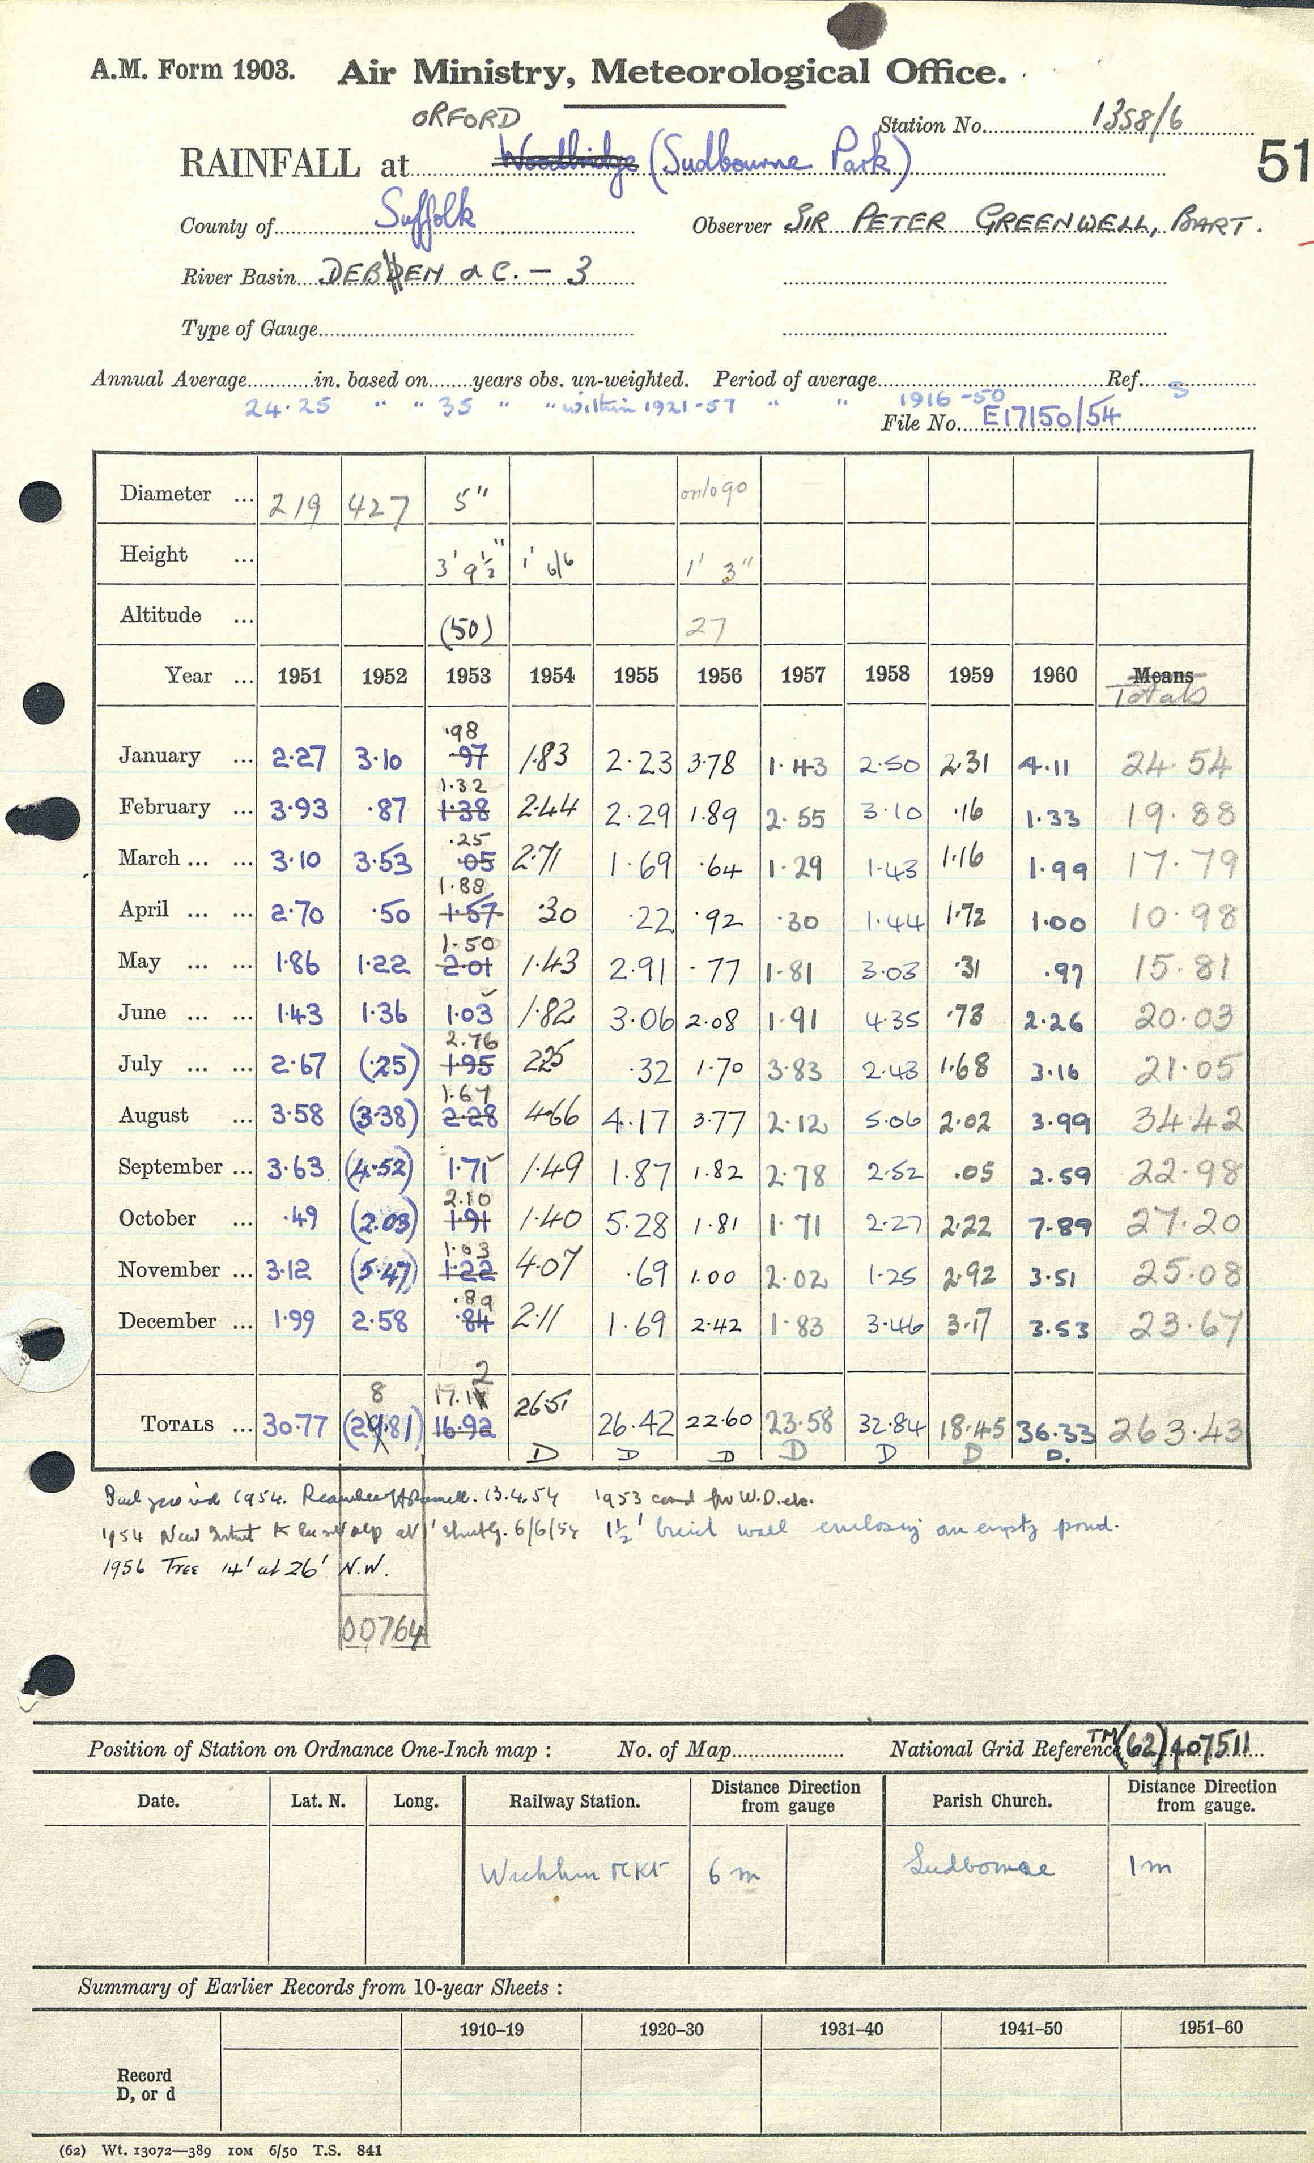 A.M. Form 1903. Air Ministry, Meteorological Office.
ORFORD
Station No. 1358/6
RAINFALL at Woodbridge (Sudbourne Park)
51
County of Suffolk Observer SIR PETER GREENWELL, BART.
River Basin DEBEN &C. – 3
Type of Gauge
Annual Average in. based on years obs. un-weighted. Period of average Ref. S
24.25 " " 35 " " within 1921-57 " " 1916-50
File No. E17150/54
Diameter ... 219 427 5"
Height ... 3' 9½" 1' 6/6 1' 3"
Altitude ... (50) 27
Year ... 1951 1952 1953 1954 1955 1956 1957 1958 1959 1960 Means
Totals
.98
January ... 2.27 3.10 .97 1.83 2.23 3.78 1.43 2.50 2.31 4.11 24.54
1.32
February ... 3.93 .87 1.38 2.44 2.29 1.89 2.55 3.10 .16 1.33 19.88
.25
March ... ... 3.10 3.53 .05 2.71 1.69 .64 1.29 1.43 1.16 1.99 17.79
1.88
April ... ... 2.70 .50 1.57 .30 .22 .92 .30 1.44 1.72 1.00 10.98
1.50
May ... ... 1.86 1.22 2.01 1.43 2.91 .77 1.81 3.03 .31 .97 15.81
June ... ... 1.43 1.36 1.03 1.82 3.06 2.08 1.91 4.35 .73 2.26 20.03
2.76
July ... ... 2.67 (.25) 1.95 2.25 .32 1.70 3.83 2.43 1.68 3.16 21.05
1.67
August ... 3.58 (3.38) 2.28 4.66 4.17 3.77 2.12 5.06 2.02 3.99 34.42
September ... 3.63 (4.52) 1.71 1.49 1.87 1.82 2.78 2.52 .05 2.59 22.98
2.10
October ... .49 (2.03) 1.91 1.40 5.28 1.81 1.71 2.27 2.22 7.89 27.20
1.03
November ... 3.12 (5.47) 1.22 4.07 .69 1.00 2.02 1.25 2.92 3.51 25.08
.89
December ... 1.99 2.58 .84 2.11 1.69 2.42 1.83 3.46 3.17 3.53 23.67
8 17.12
TOTALS ... 30.77 (29.81) 16.92 26.51 26.42 22.60 23.58 32.84 18.45 36.33 263.43
D D D D D D D.
1954. 13.4.54 1953 for W.D. etc.
1954 New at 1' 6/6/54 1½' brick wall enclosing an empty pond.
1956 TREE 14' at 26' N.W.
00764
Position of Station on Ordnance One-Inch map : No. of Map National Grid Reference TM (62) 407511
Date. Lat. N. Long. Railway Station. Distance from gauge Direction Parish Church. Distance from gauge. Direction
Wickham MKT 6 m Sudbourne 1 m
Summary of Earlier Records from 10-year Sheets :
1910–19 1920–30 1931–40 1941–50 1951–60
Record
D, or d
(62) Wt. 13072—389 10M 6/50 T.S. 841